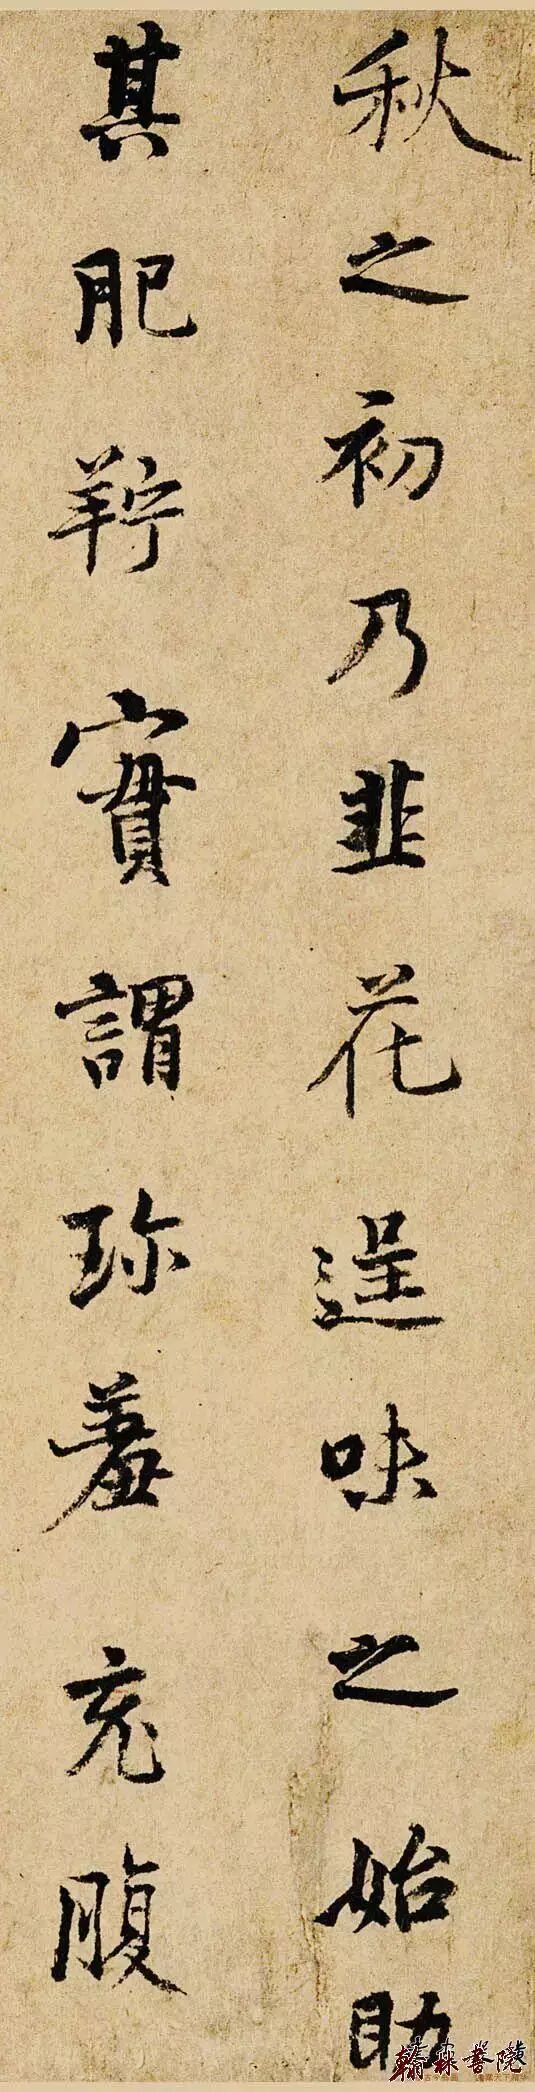 秋之初乃韭花逞味之始助
其肥羜實謂珍羞充腹
翰林書院